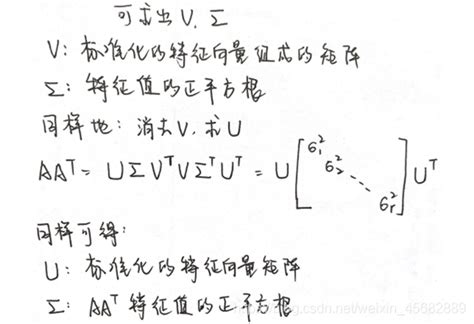 可求出 V, Σ
V: 标准化的特征向量组成的矩阵
Σ: 特征值的正平方根
同样地: 消去V, 求U
AAᵀ = UΣVᵀVΣᵀUᵀ = U [ σ₁² σ₂² ⋱ σᵣ² ] Uᵀ
同样可得:
U: 标准化的特征向量矩阵
Σ: AAᵀ 特征值的正平方根
https://blog.csdn.net/weixin_45682889